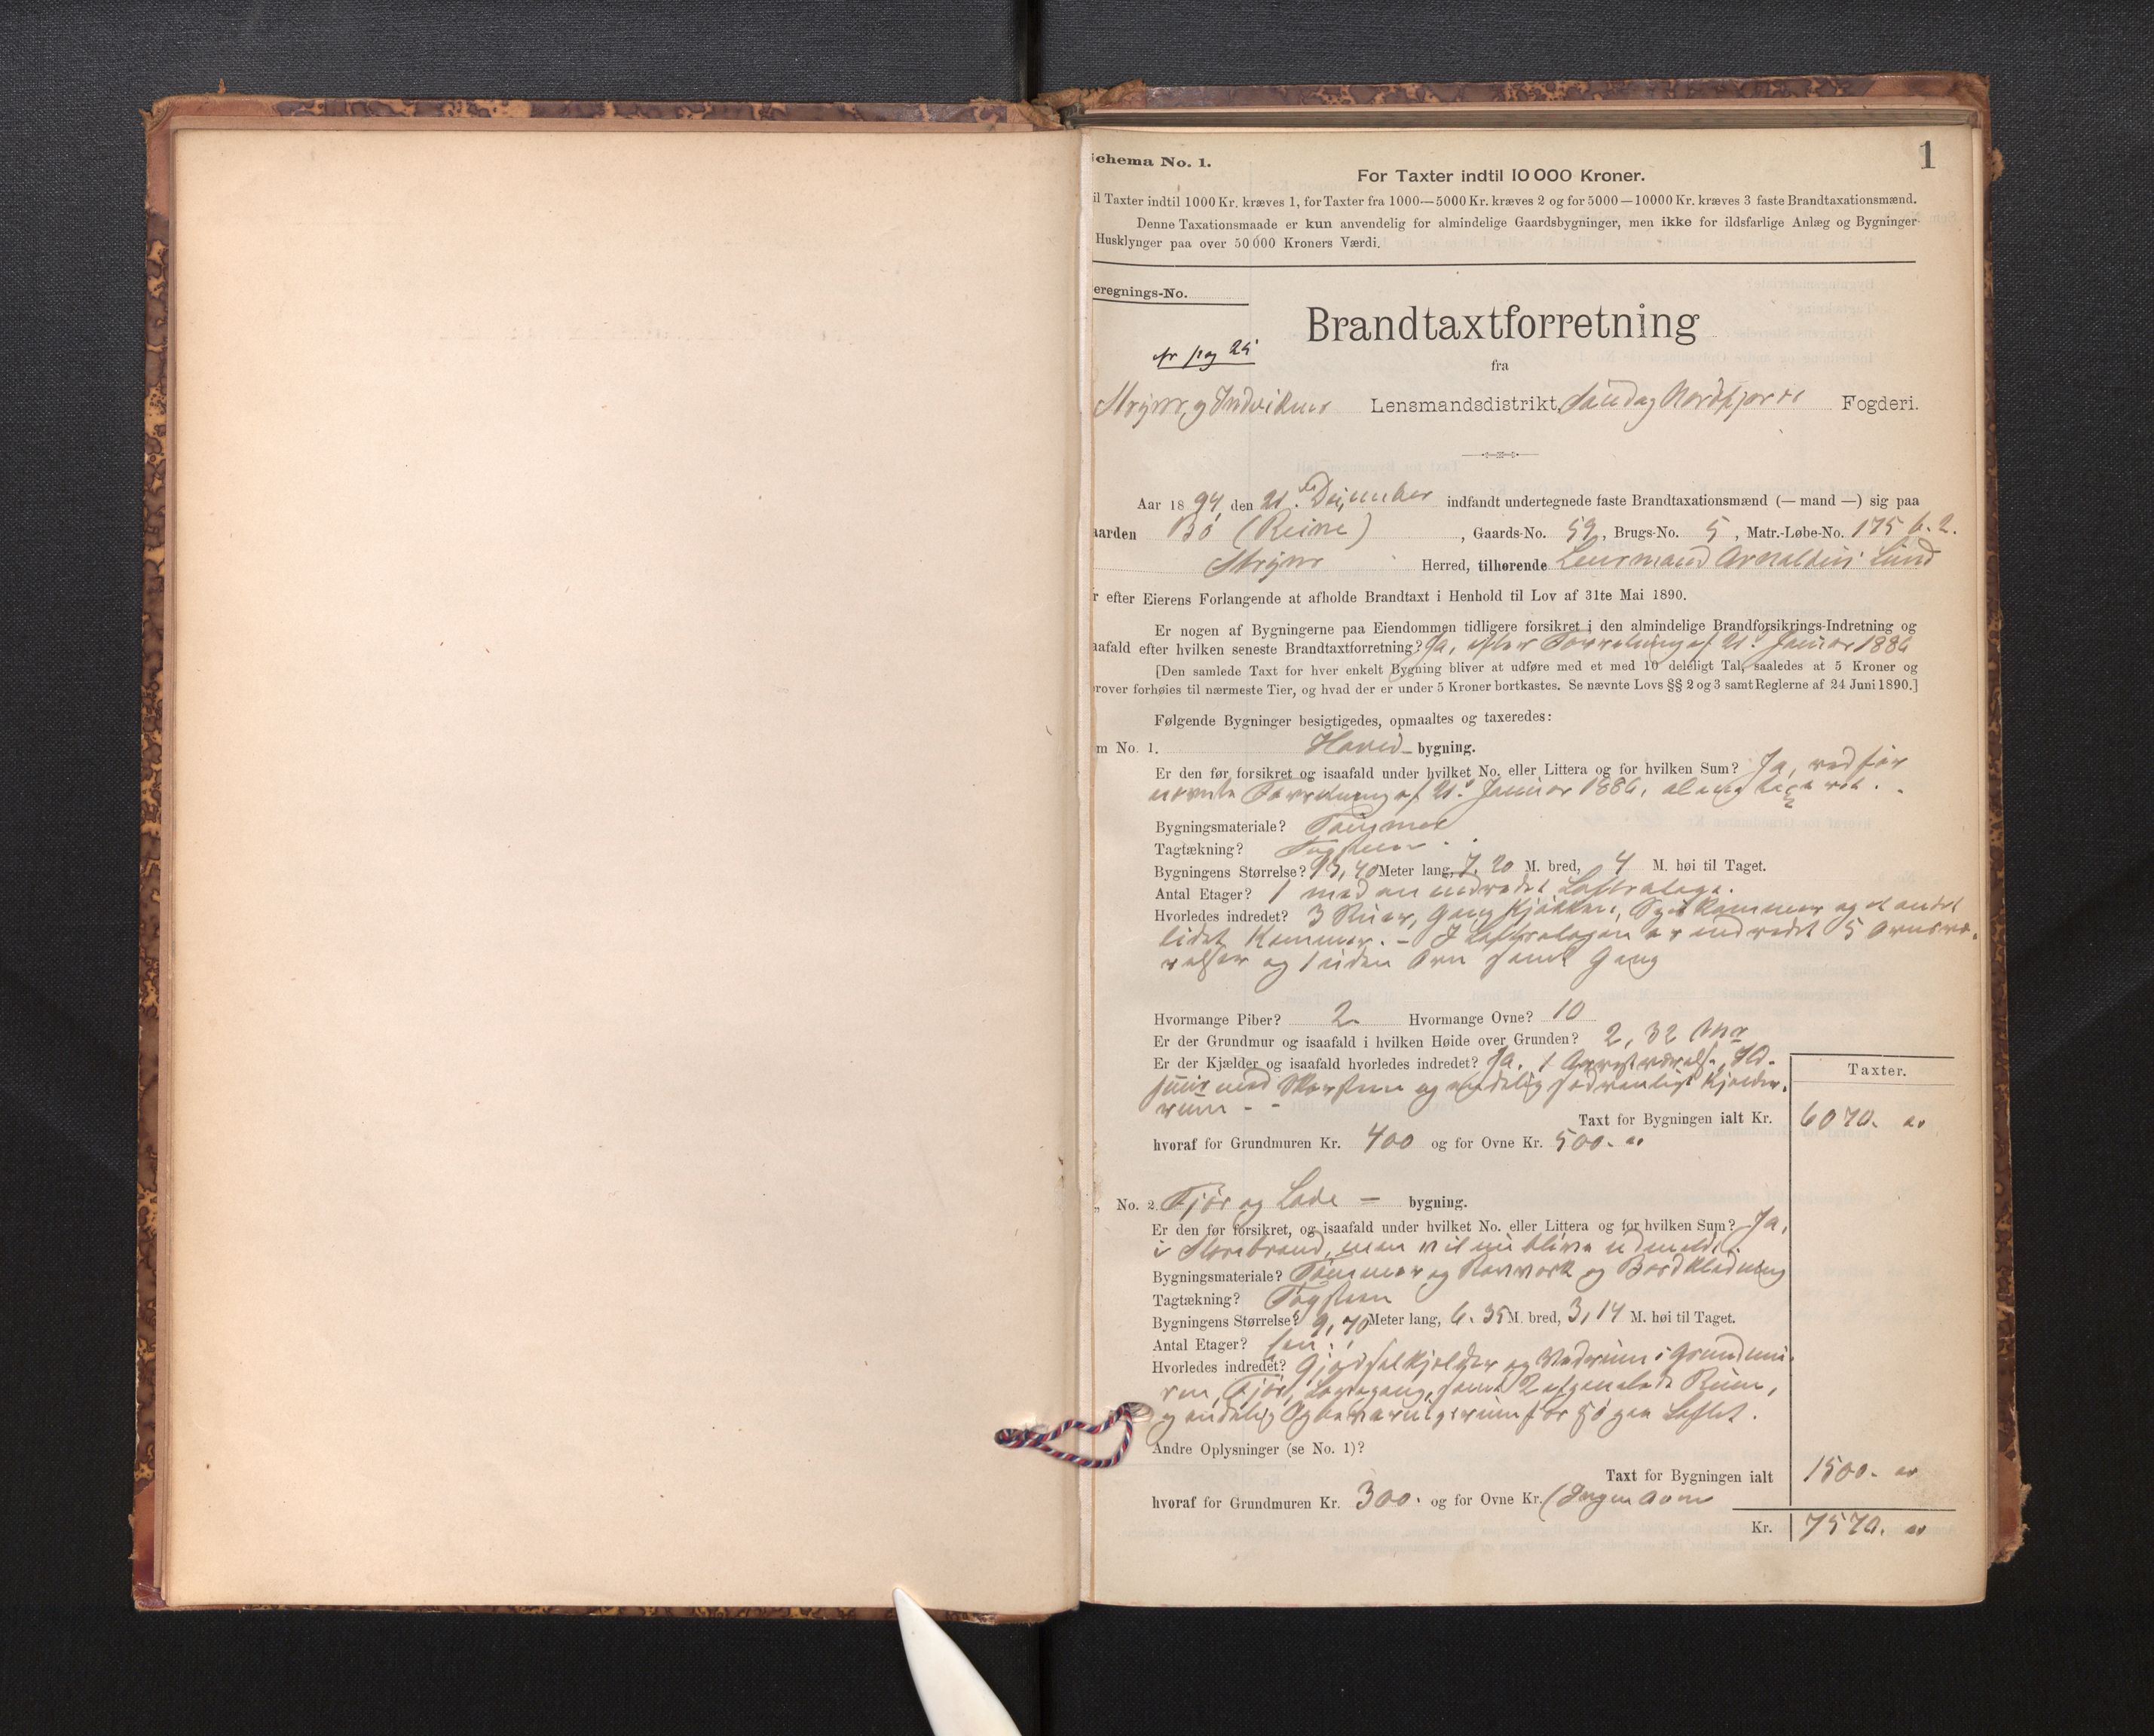 1
chema No. 1.
For Taxter indtil 10 000 Kroner.
il Taxter indtil 1000 Kr. kræves 1, for Taxter fra 1000—5000 Kr. kræves 2 og for 5000—10000 Kr. kræves 3 faste Brandtaxationsmænd.
Denne Taxationsmaade er kun anvendelig for almindelige Gaardsbygninger, men ikke for ildsfarlige Anlæg og Bygninger
Husklynger paa over 50 000 Kroners Værdi.
eregnings-No.
Brandtaxtforretning
pag 25
fra
Stryns og Indvikens Lensmandsdistrikt, Sønd og Nordfjords Fogderi.
Aar 1894, den 21de December indfandt undertegnede faste Brandtaxationsmænd (— mand —) sig paa
aarden Bö (Reine), Gaards-No. 59, Brugs-No. 5, Matr.-Løbe-No. 175 b. 2.
Stryns Herred, tilhørende Lensmand Arnoldus Lund
r efter Eierens Forlangende at afholde Brandtaxt i Henhold til Lov af 31te Mai 1890.
Er nogen af Bygningerne paa Eiendommen tidligere forsikret i den almindelige Brandforsikrings-Indretning og
aafald efter hvilken seneste Brandtaxtforretning? Ja, efter Forretning af 21. Januar 1886
[Den samlede Taxt for hver enkelt Bygning bliver at udføre med et med 10 deleligt Tal, saaledes at 5 Kroner og
rover forhøies til nærmeste Tier, og hvad der er under 5 Kroner bortkastes. Se nævnte Lovs §§ 2 og 3 samt Reglerne af 24 Juni 1890.]
Følgende Bygninger besigtigedes, opmaaltes og taxeredes:
m No. 1. Hoved- bygning.
Er den før forsikret og isaafald under hvilket No. eller Littera og for hvilken Sum? Ja, ved før
nævnte Forretning af 21. Januar 1886,
Bygningsmateriale? Tømmer
Tagtækning? Tagsteen
Bygningens Størrelse? 13,40 Meter lang, 7.20 M. bred, 4 M. høi til Taget.
Antal Etager? 1 med en indredet Loftsetage.
Hvorledes indredet? 3 Stuer, Gang Kjøkken, Kammer og et andet
lidet Kammer. - I Loftsetagen er indredet 5 Ovnsvæ-
relser og 1 uden Ovn samt Gang
Hvormange Piber? 2 Hvormange Ovne? 10
Er der Grundmur og isaafald i hvilken Høide over Grunden? 2,32 Mtr
Er der Kjælder og isaafald hvorledes indredet? Ja, 1 Arrestværelse, Ild-
huus med Skorsteen og endelig sædvanligt Kjælder-
rum - -
Taxter.
Taxt for Bygningen ialt Kr. 6070.
hvoraf for Grundmuren Kr. 400 og for Ovne Kr. 500.
„ No. 2. Fjøs og Lade — bygning.
Er den før forsikret, og isaafald under hvilket No. eller Littera og for hvilken Sum? Ja,
i Storebrand, men vil nu blive udmeldt.
Bygningsmateriale? Tømmer og og Bordklædning
Tagtækning? Tagsteen
Bygningens Størrelse? 9,70 Meter lang, 6.35 M. bred, 3,14 M. høi til Taget.
Antal Etager? een
Hvorledes indredet? Gjødselkjelder og Vedrum i Grundmu-
ren, Fjøs, samt 2 Rum,
og endelig Opbevaringsrum for Loftet.
Andre Oplysninger (se No. 1)?
Taxt for Bygningen ialt 1500.
hvoraf for Grundmuren Kr. 300. og for Ovne Kr. (Ingen Ovne
Kr. 7570.